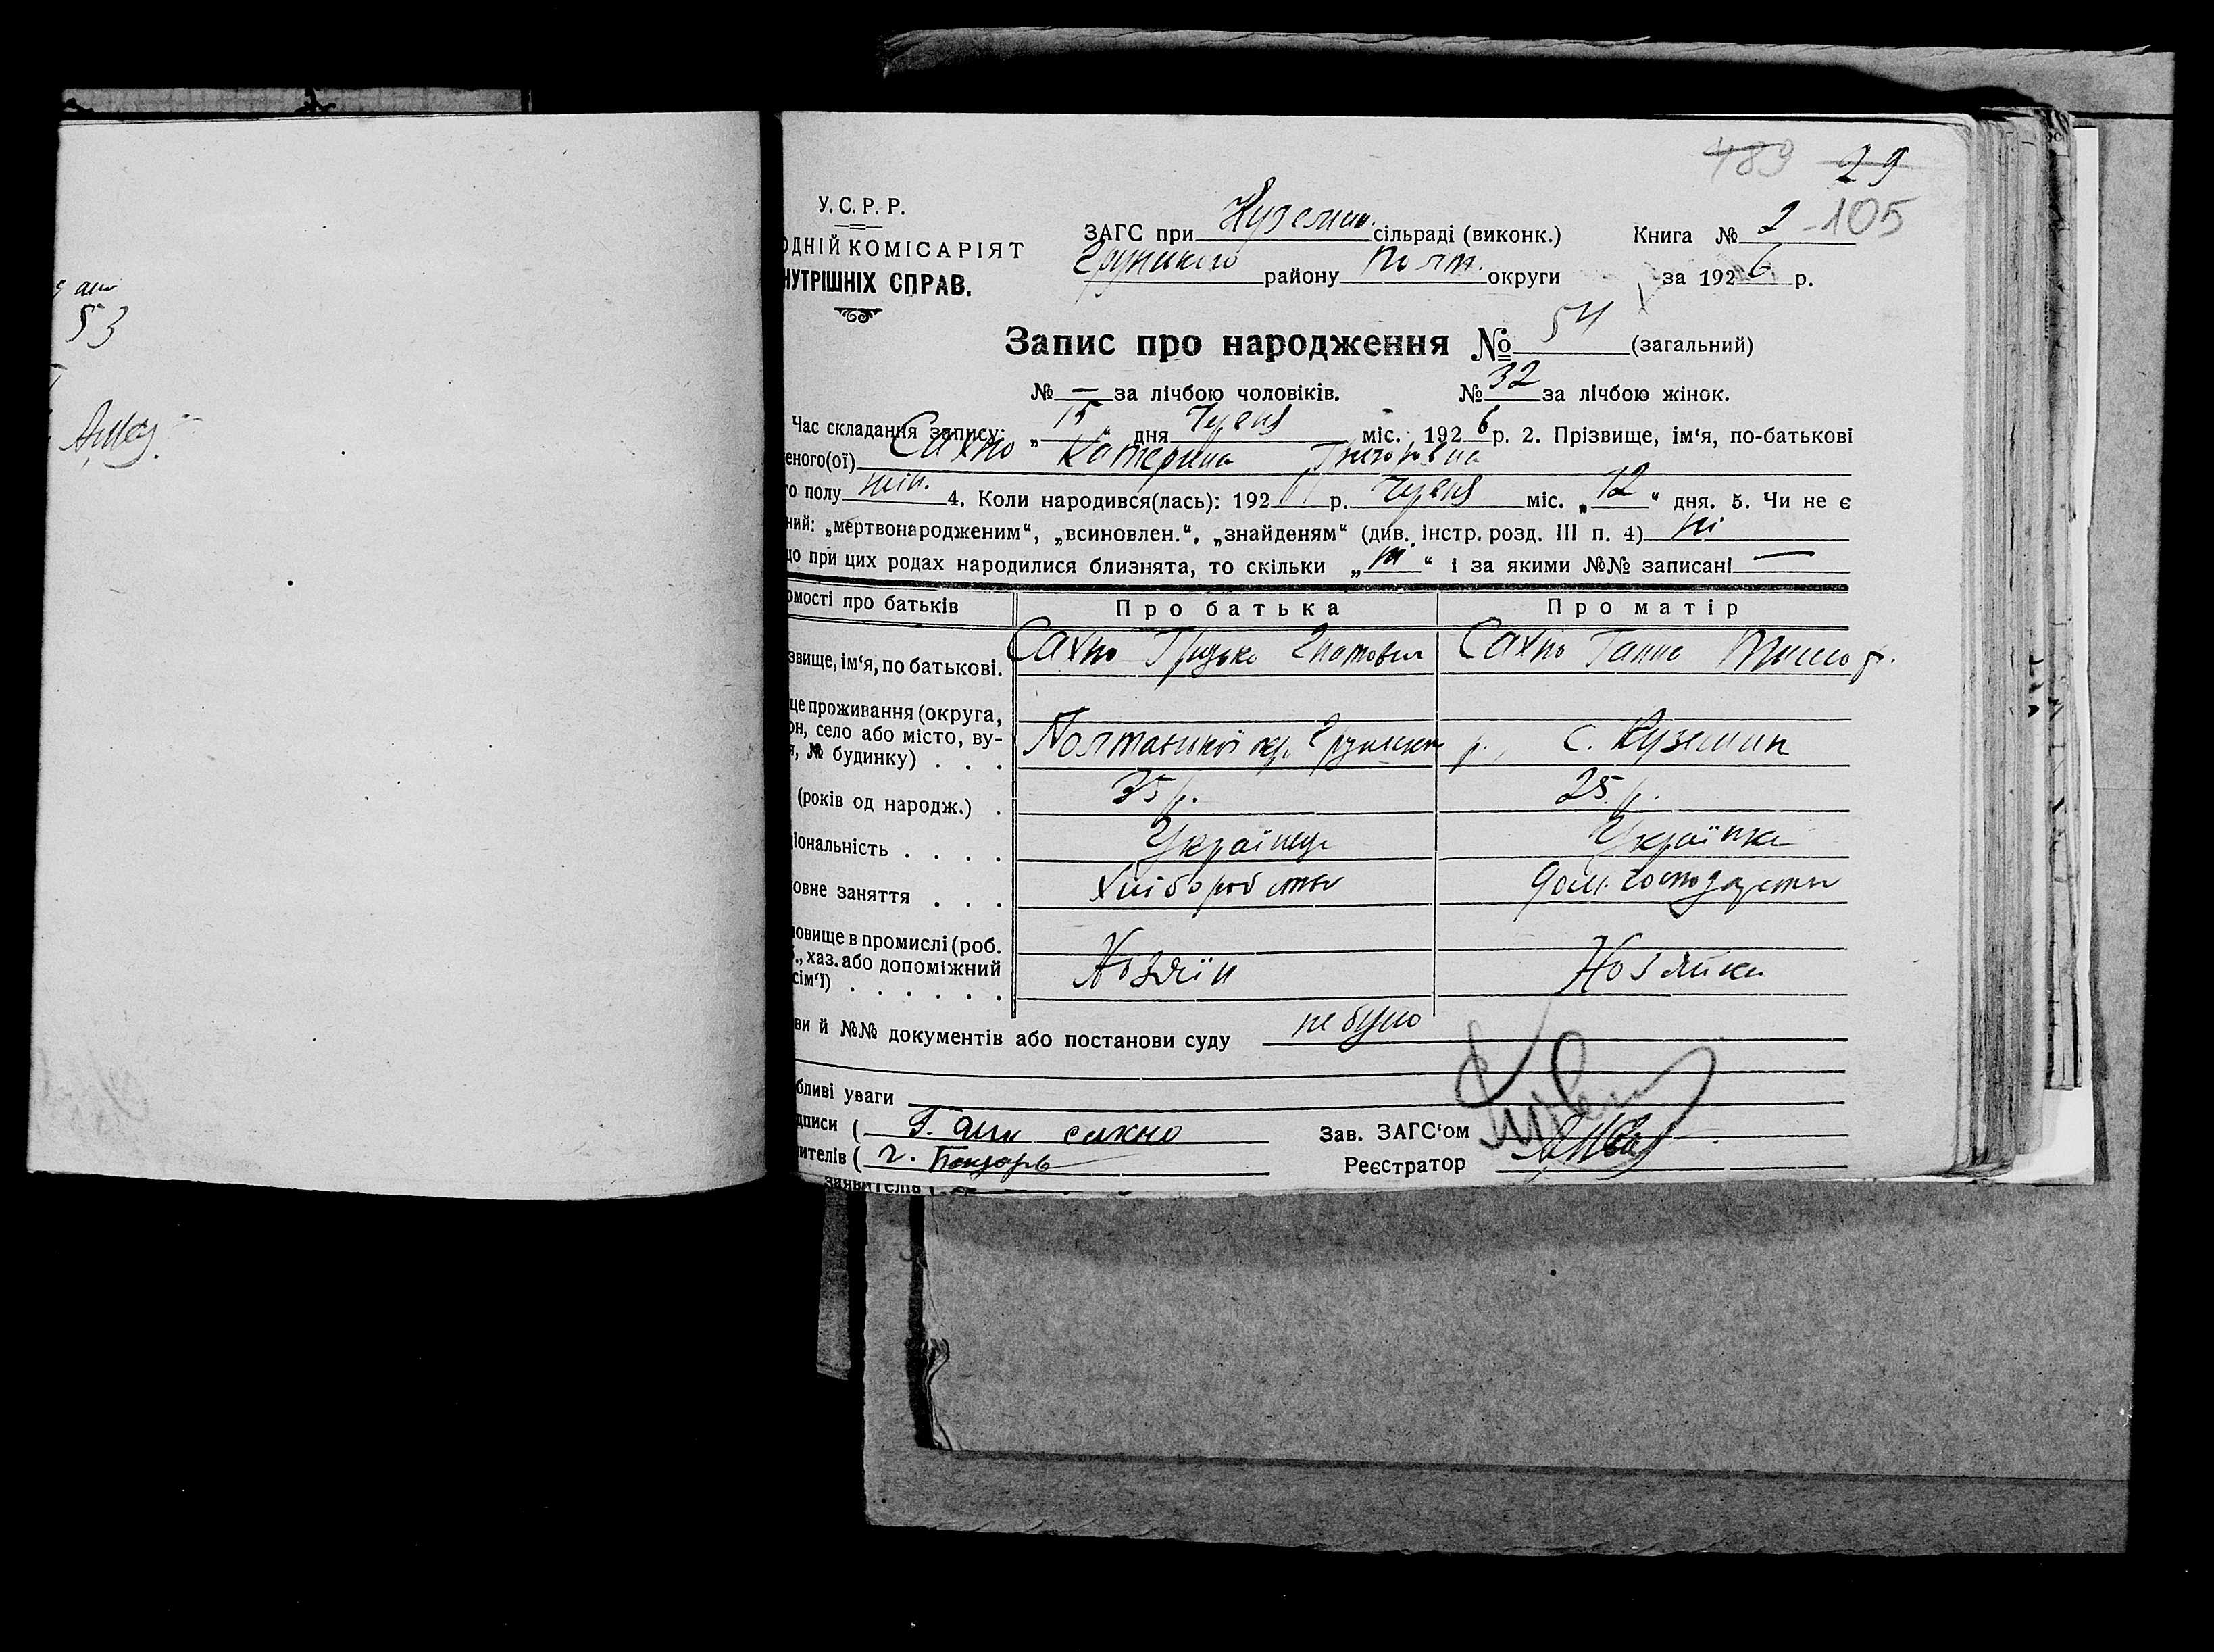 53
489 29
105
У. С. Р. Р.
ОДНІЙ КОМІСАРІЯТ
НУТРІШНІХ СПРАВ.
ЗАГС при Куземин. сільраді (виконк.)
Грунського району Полт. округи
Книга № 2
за 1926 р.
Запис про народження № 54 (загальний)
№ — за лічбою чоловіків. № 32 за лічбою жінок.
Час складання запису: „15" дня Червня міс. 1926 р. 2. Прізвище, ім'я, по-батькові
еного(ої) Сахно Катерина Григоровна
го полу жін. 4. Коли народився(лась): 192 р. Червня міс. „12" дня. 5. Чи не є
ний: „мертвонародженим", „всиновлен.", „знайденям" (див. інстр. розд. III п. 4) ні
що при цих родах народилися близнята, то скільки „ні" і за якими №№ записані —
омості про батьків Про батька Про матір
звище, ім'я, по батькові. Сахно Грицько Гнатович Сахно Ганна
це проживання (округа,
он, село або місто, ву-
я, № будинку) . . . Полтавської окр. Грунськ р., с. Куземин
(років од народж.) . 35 р. 25 р.
ціональність . . . . Українець Українка
овне заняття . . . Хліборобство дом. господарство
овище в промислі (роб.
., хаз. або допоміжний
сім'ї) . . . . . . Хозяїн Хозяйка
ви й №№ документів або постанови суду не було
бливі уваги
дписи ( Г. Ана сахно
ителів ( г. Бондарь
Зав. ЗАГС'ом
Реєстратор
заявителів (